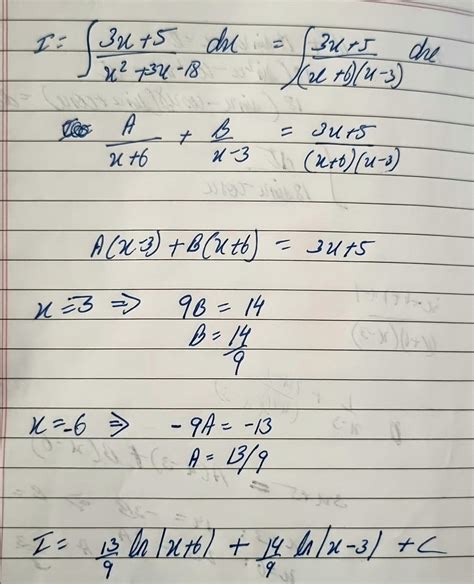 I = ∫ 3x+5 / x² +3x-18 dx = ∫ 3x+5 / (x+6)(x-3) dx
A / x+6 + B / x-3 = 3x+5 / (x+6)(x-3)
A(x-3) + B(x+6) = 3x+5
x=3 ⇒ 9B = 14
B = 14/9
x=-6 ⇒ -9A = -13
A = 13/9
I = 13/9 ln|x+6| + 14/9 ln|x-3| + C